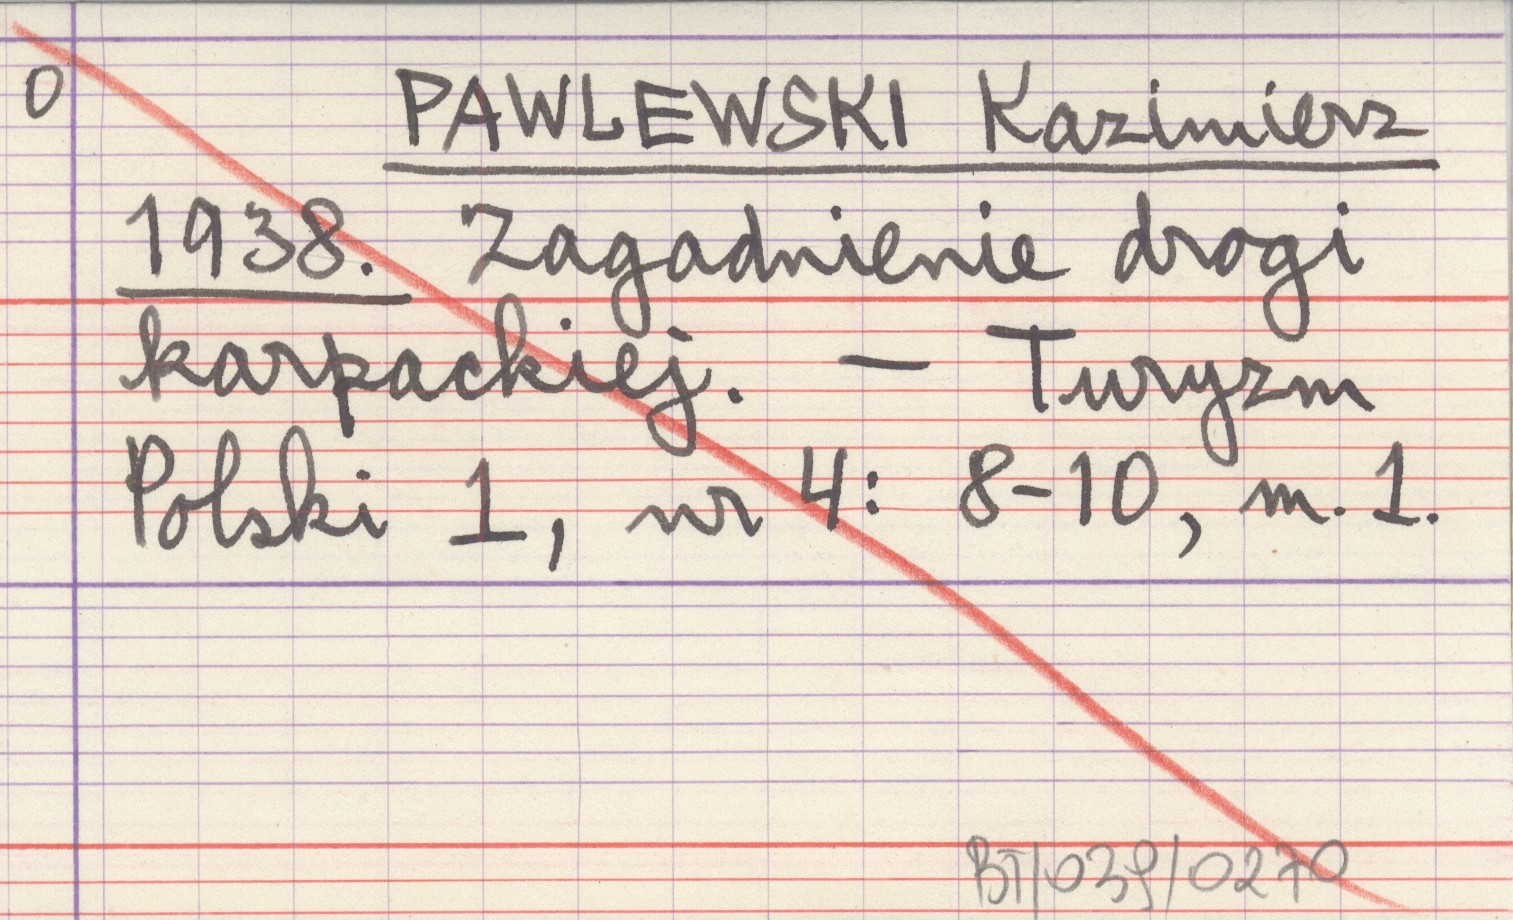 0
PAWLEWSKI Kazimierz
1938. Zagadnienie drogi
karpackiej. — Turyzm
Polski 1, nr 4: 8-10, m. 1.
BT/039/0270